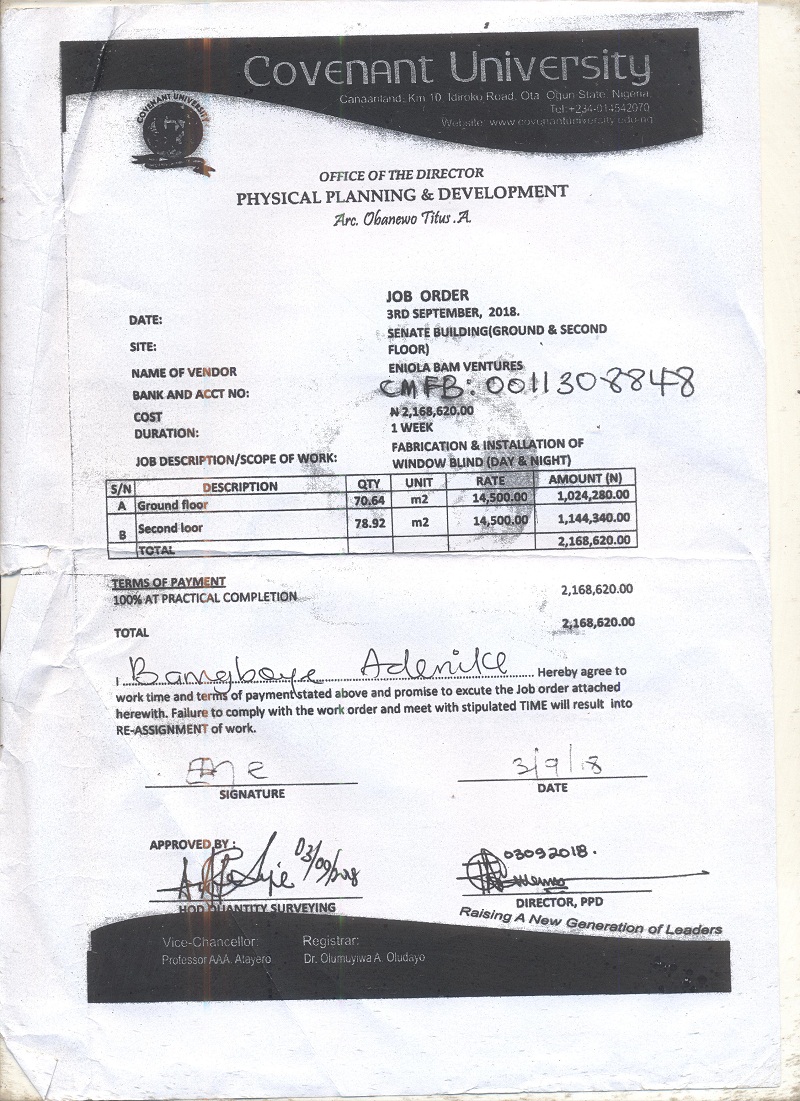 Covenant University
Canaanland, Km 10, Idiroko Road, Ota, Ogun State, Nigeria.
Tel: +234-014542070
Website: www.covenantuniversity.edu.ng
COVENANT UNIVERSITY
OFFICE OF THE DIRECTOR
PHYSICAL PLANNING & DEVELOPMENT
Arc. Obanewo Titus .A.
JOB ORDER
DATE: 3RD SEPTEMBER, 2018.
SITE: SENATE BUILDING(GROUND & SECOND
FLOOR)
NAME OF VENDOR ENIOLA BAM VENTURES
BANK AND ACCT NO: CMFB: 0011308848
COST ₦ 2,168,620.00
DURATION: 1 WEEK
JOB DESCRIPTION/SCOPE OF WORK: FABRICATION & INSTALLATION OF
WINDOW BLIND (DAY & NIGHT)
S/N DESCRIPTION QTY UNIT RATE AMOUNT (N)
A Ground floor 70.64 m2 14,500.00 1,024,280.00
B Second loor 78.92 m2 14,500.00 1,144,340.00
TOTAL 2,168,620.00
TERMS OF PAYMENT
100% AT PRACTICAL COMPLETION 2,168,620.00
TOTAL 2,168,620.00
I, Bamgboye Adenike Hereby agree to
work time and terms of payment stated above and promise to excute the Job order attached
herewith. Failure to comply with the work order and meet with stipulated TIME will result into
RE-ASSIGNMENT of work.
3/9/18
SIGNATURE DATE
APPROVED BY: 03/09/2018 03092018.
HOD QUANTITY SURVEYING DIRECTOR, PPD
Raising A New Generation of Leaders
Vice-Chancellor: Registrar:
Professor AAA. Atayero Dr. Olumuyiwa A. Oludayo